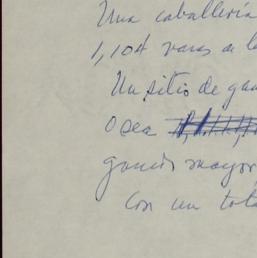 Una caballería
1,104 varas a l
Un sitio de gan
O sea
ganado mayor
Con un tot